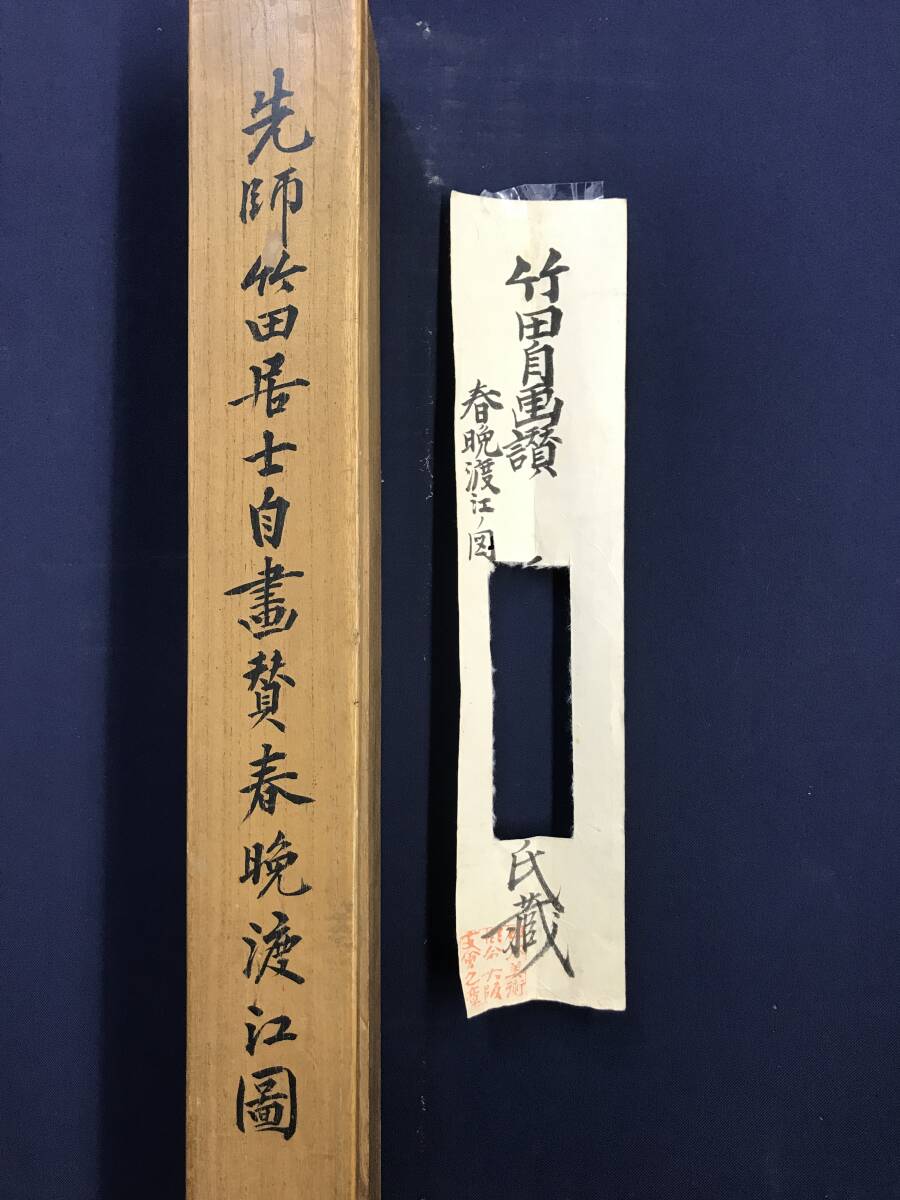 先師竹田居士自畫賛春晩渡江圖
竹田自画讃
春晩渡江ノ図
氏藏
美術
大阪